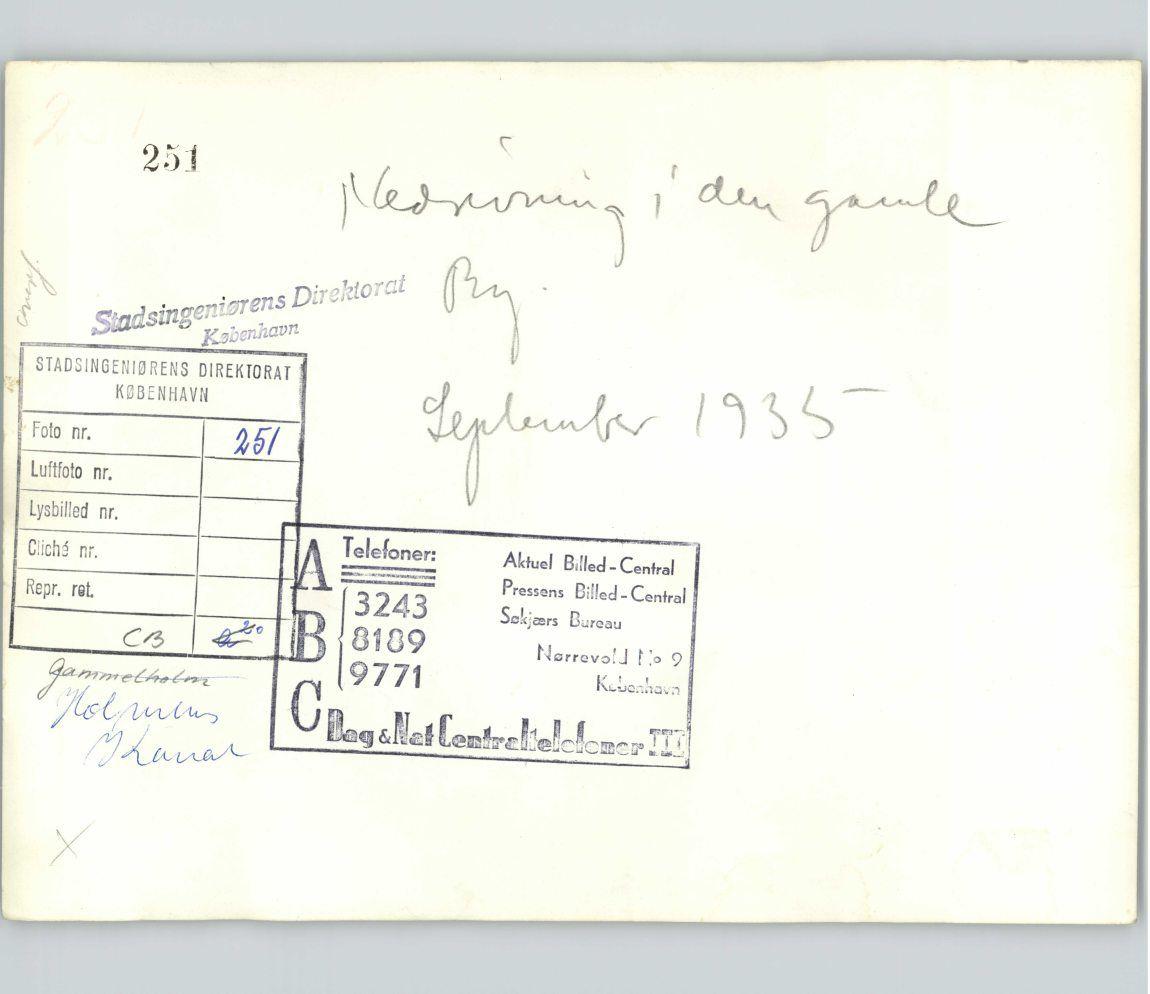 251
251
Nedrivning i den gamle
By.
September 1935
Stadsingeniørens Direktorat
København
STADSINGENIØRENS DIREKTORAT
KØBENHAVN
Foto nr. 251
Luftfoto nr.
Lysbilled nr.
Cliché nr.
Repr. ret.
CB 20
gammelholm
Holmens
Kanal
A B C
Telefoner:
3243
8189
9771
Aktuel Billed-Central
Pressens Billed-Central
Søkjærs Bureau
Nørrevold No 9
København
Dag & Nat Centraltelefoner III
X